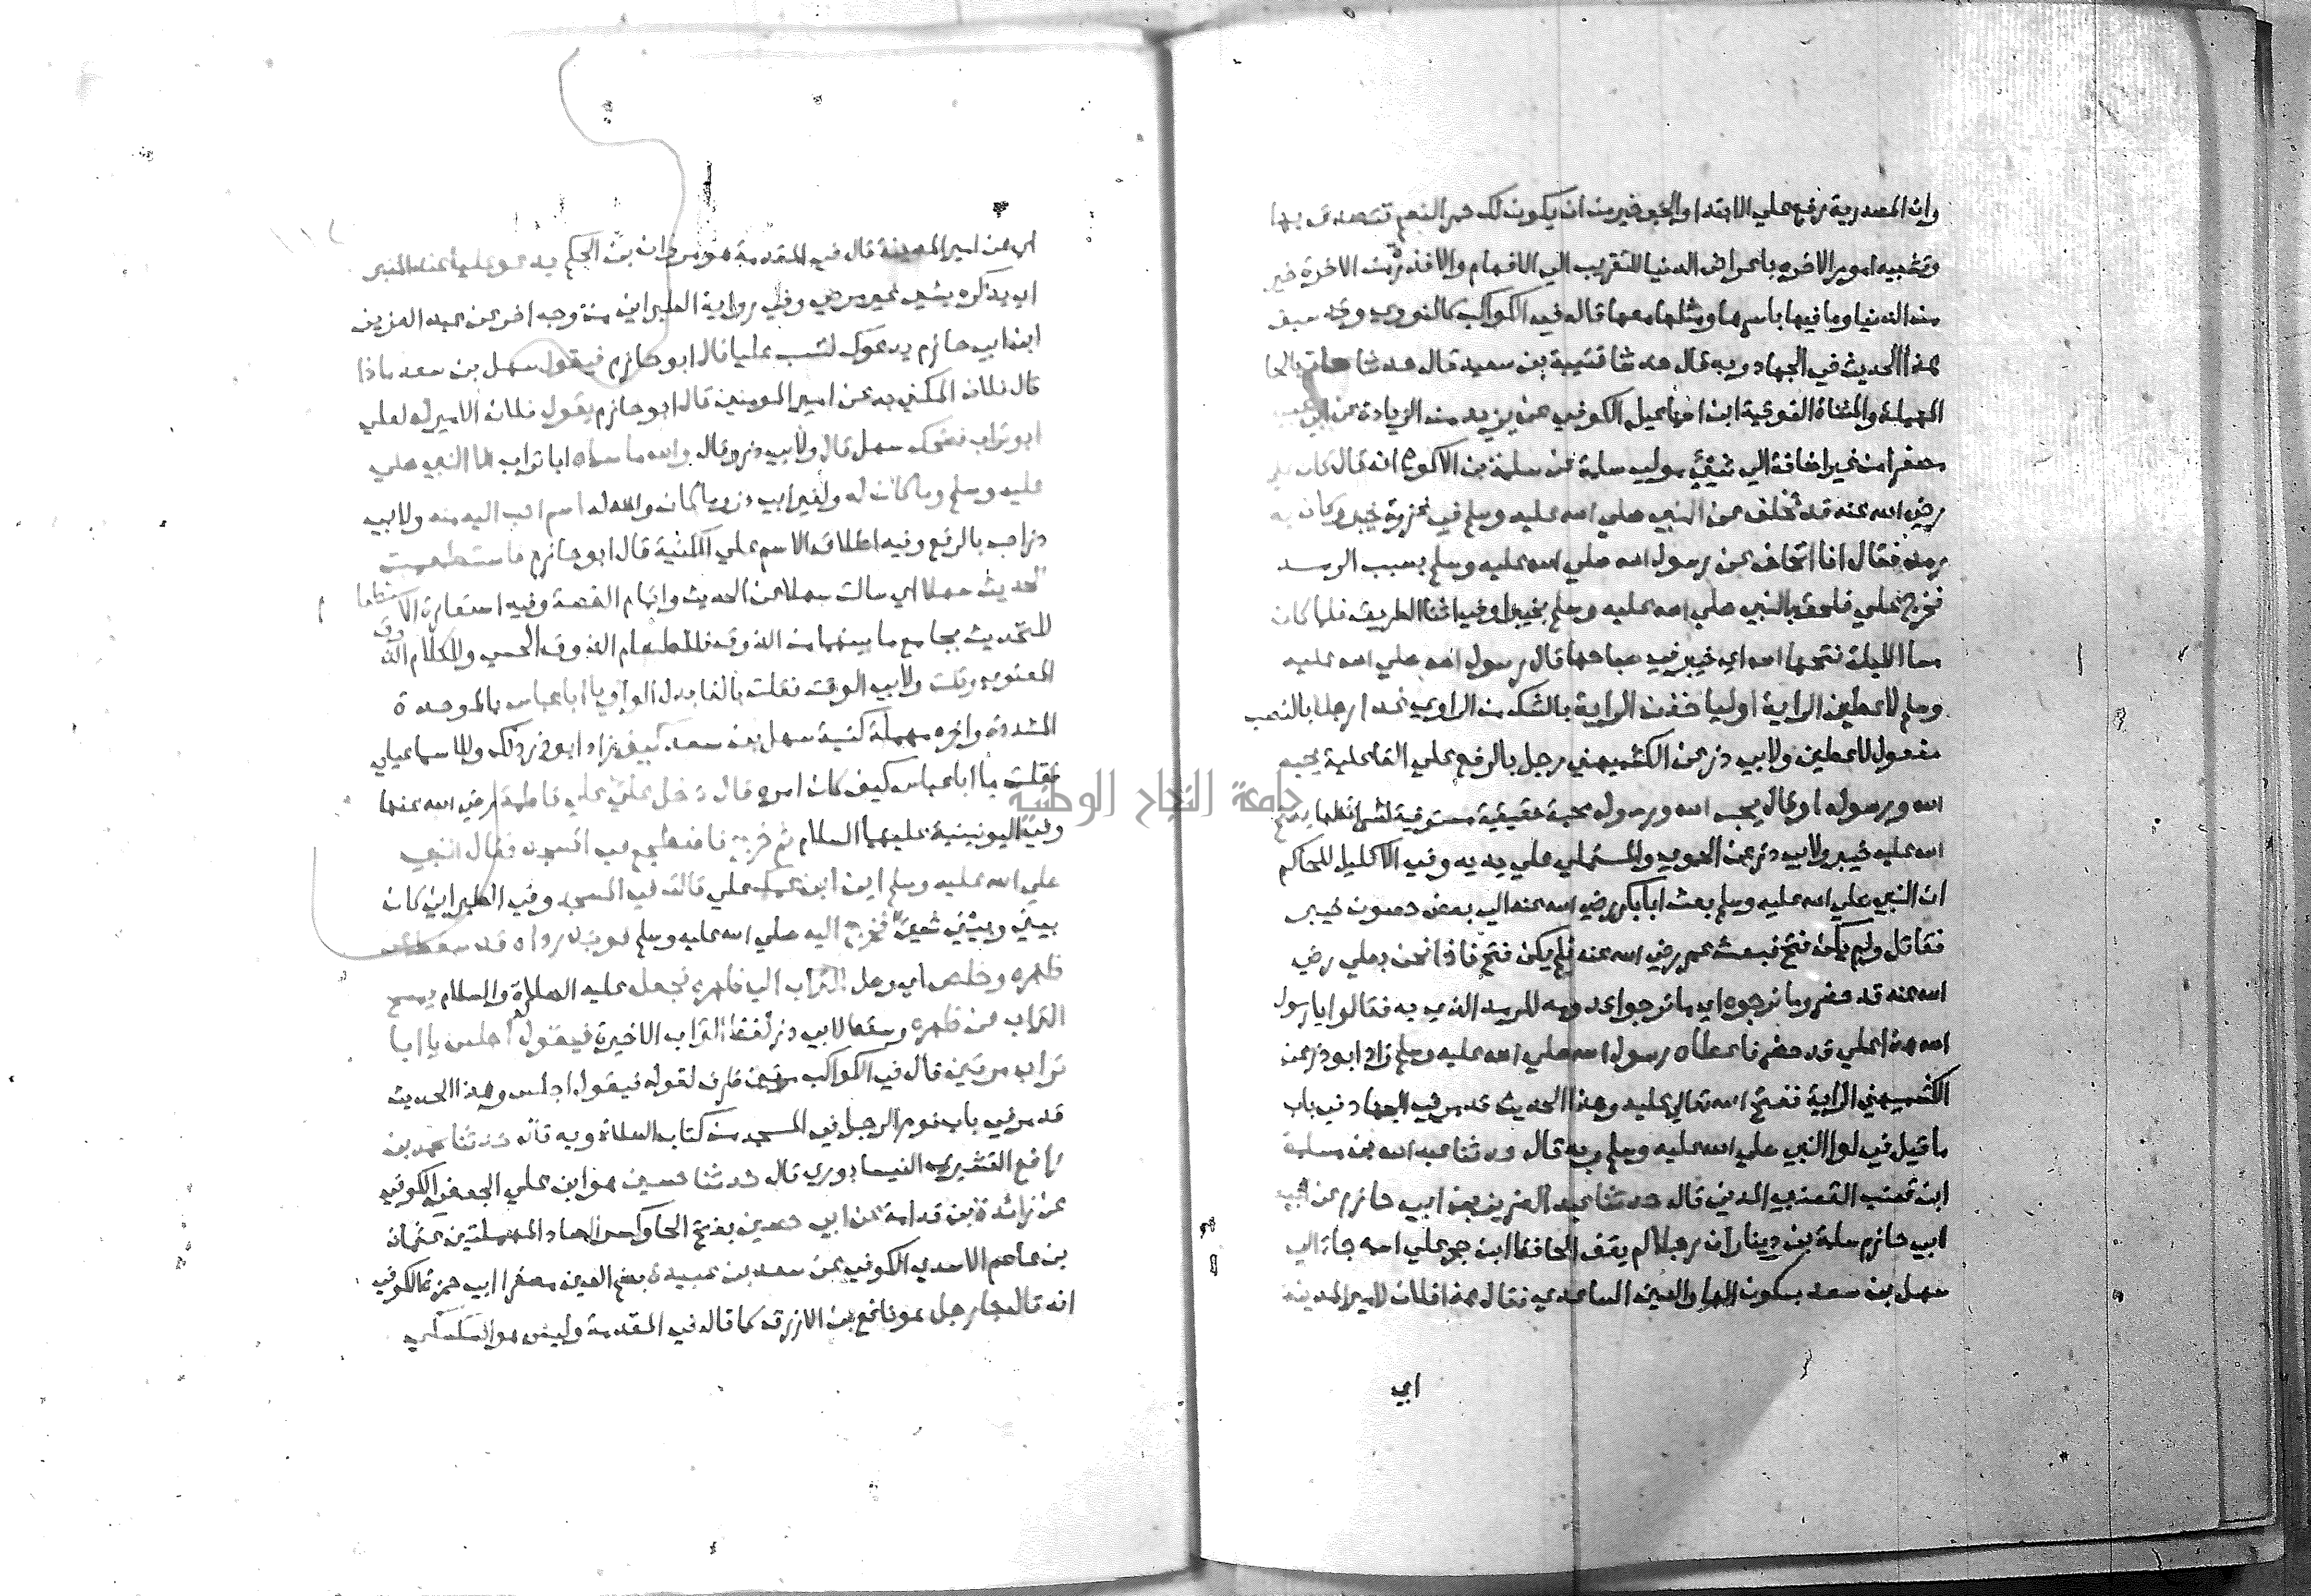 وان المصدرية رفع علي الابتدا والخبر خير من ان يكون لك حمر النعم تتصدق بها
وتشبيه امور الاخرة باعراض الدنيا للتقريب الي الافهام والا فذرة من الاخرة خير
من الدنيا وما فيها باسرها ومثلها معها قاله في الكواكب كالنووي وقد سبق
هذا الحديث في الجهاد وبه قال حدثنا قتيبة بن سعيد قال حدثنا حاتم بالحا
المهملة والمثناة الفوقية ابن اسماعيل الكوفي عن يزيد من الزيادة عن ابي عبيد
مصغرا من غير اضافة الي شيء مولي سلمة عن سلمة بن الاكوع انه قال كان علي
رضي الله عنه قد تخلف عن النبي صلي الله عليه وسلم في غزوة خيبر وكان به
رمد فقال انا اتخلف عن رسول الله صلي الله عليه وسلم بسبب الرمد
فخرج علي فلحق بالنبي صلي الله عليه وسلم بخيبر او في اثنا الطريق فلما كان
مسا الليلة فتحها الله اي خيبر في صباحها قال رسول الله صلي الله عليه
وسلم لاعطين الراية او لياخذن الراية بالشك من الراوي غدا رجلا بالنصب
مفعول لاعطين ولابي ذر عن الكشميهني رجل بالرفع علي الفاعلية يحبه
الله ورسوله او قال يحب الله ورسوله محبة حقيقية مستوفية لشرائطها يفتح
الله عليه خيبر ولابي ذر عن الحموي والمستملي علي يديه وفي الاكليل للحاكم
ان النبي صلي الله عليه وسلم بعث ابا بكر رضي الله عنه الي بعض حصون خيبر
فقاتل ولم يكن فتح فبعث عمر رضي الله عنه فلم يكن فتح فاذا نحن بعلي رضي
الله عنه قد حضر وما نرجوه اي ما نرجوا قدومه للرمد الذي به فقالوا يا رسول
الله هذا علي قد حضر فاعطاه رسول الله صلي الله عليه وسلم زاد ابو ذر عن
الكشميهني الراية ففتح الله تعالي عليه وهذا الحديث قد مر في الجهاد في باب
ما قيل في لوا النبي صلي الله عليه وسلم وبه قال حدثنا عبد الله بن مسلمة
ابن قعنب القعنبي المدني قال حدثنا عبد العزيز بن ابي حازم عن ابيه
ابي حازم سلمة بن دينار ان رجلا لم يقف الحافظ ابن حجر علي اسمه جا الي
سهل بن سعد بسكون الها والعين الساعدي فقال هذا فلان لامير المدينة
اي
اي عن امير المدينة قال في المقدمة هو مروان بن الحكم يدعو عليا عند المنبر
اي يذكره بشي غير مرضي وفي رواية الطبراني من وجه اخر عن عبد العزيز
ابن ابي حازم يدعوك لتسب عليا قال ابو حازم فيقول سهل بن سعد ماذا
قال فلان المكني به عن امير المومنين قال ابو حازم يقول فلان الامير له لعلي
ابو تراب فضحك سهل قال ولابي ذر وقال والله ما سماه ابا تراب الا النبي صلي
عليه وسلم وما كان له ولغير ابي ذر وما كان والله له اسم احب اليه منه ولابي
ذر احب بالرفع وفيه اطلاق الاسم علي الكنية قال ابو حازم فاستطعمت
الحديث سهلا اي سالت سهلا عن الحديث واتمام القصة وفيه استعارة الاستطعام
للتحديث بجامع ما بينهما من الذوق فللطعام الذوق الحسي وللكلام الذوق
المعنوي وقلت ولابي الوقت فقلت بالفا بدل الواو يا ابا عباس بالموحدة
المشددة واخره مهملة كنية سهل بن سعد كيف زاد ابو ذر ذلك وللاسماعيلي
فقلت يا ابا عباس كيف كان امره قال دخل علي علي فاطمة رضي الله عنها
وفي اليونينية عليهما السلام ثم خرج فاضطجع في المسجد فقال النبي
صلي الله عليه وسلم اين ابن عمك علي قالت في المسجد وفي الطبراني كان
بيني وبينه شيء فخرج اليه صلي الله عليه وسلم فوجد رداه قد سقط عن
ظهره وخلص اي وصل التراب الي ظهره فجعل عليه الصلاة والسلام يمسح
التراب عن ظهره وسقط لابي ذر لفظ التراب الاخيرة فيقول اجلس يا ابا
تراب مرتين قال في الكواكب مرتين ظرف لقوله فيقول اجلس وهذا الحديث
قد مر في باب نوم الرجل في المسجد من كتاب الصلاة وبه قال حدثنا محمد بن
رافع القشيري النيسابوري قال حدثنا حسين هو ابن علي الجعفي الكوفي
عن زائدة بن قدامة عن ابي حصين بفتح الحا وكسر الصاد المهملتين عثمان
بن عاصم الاسدي الكوفي عن سعد بن عبيدة بضم العين مصغرا ابي حمزة الكوفي
انه قال جا رجل هو نافع بن الازرق كما قاله في المقدمة وليس هو السكسكي
جامعة النجاح الوطنية